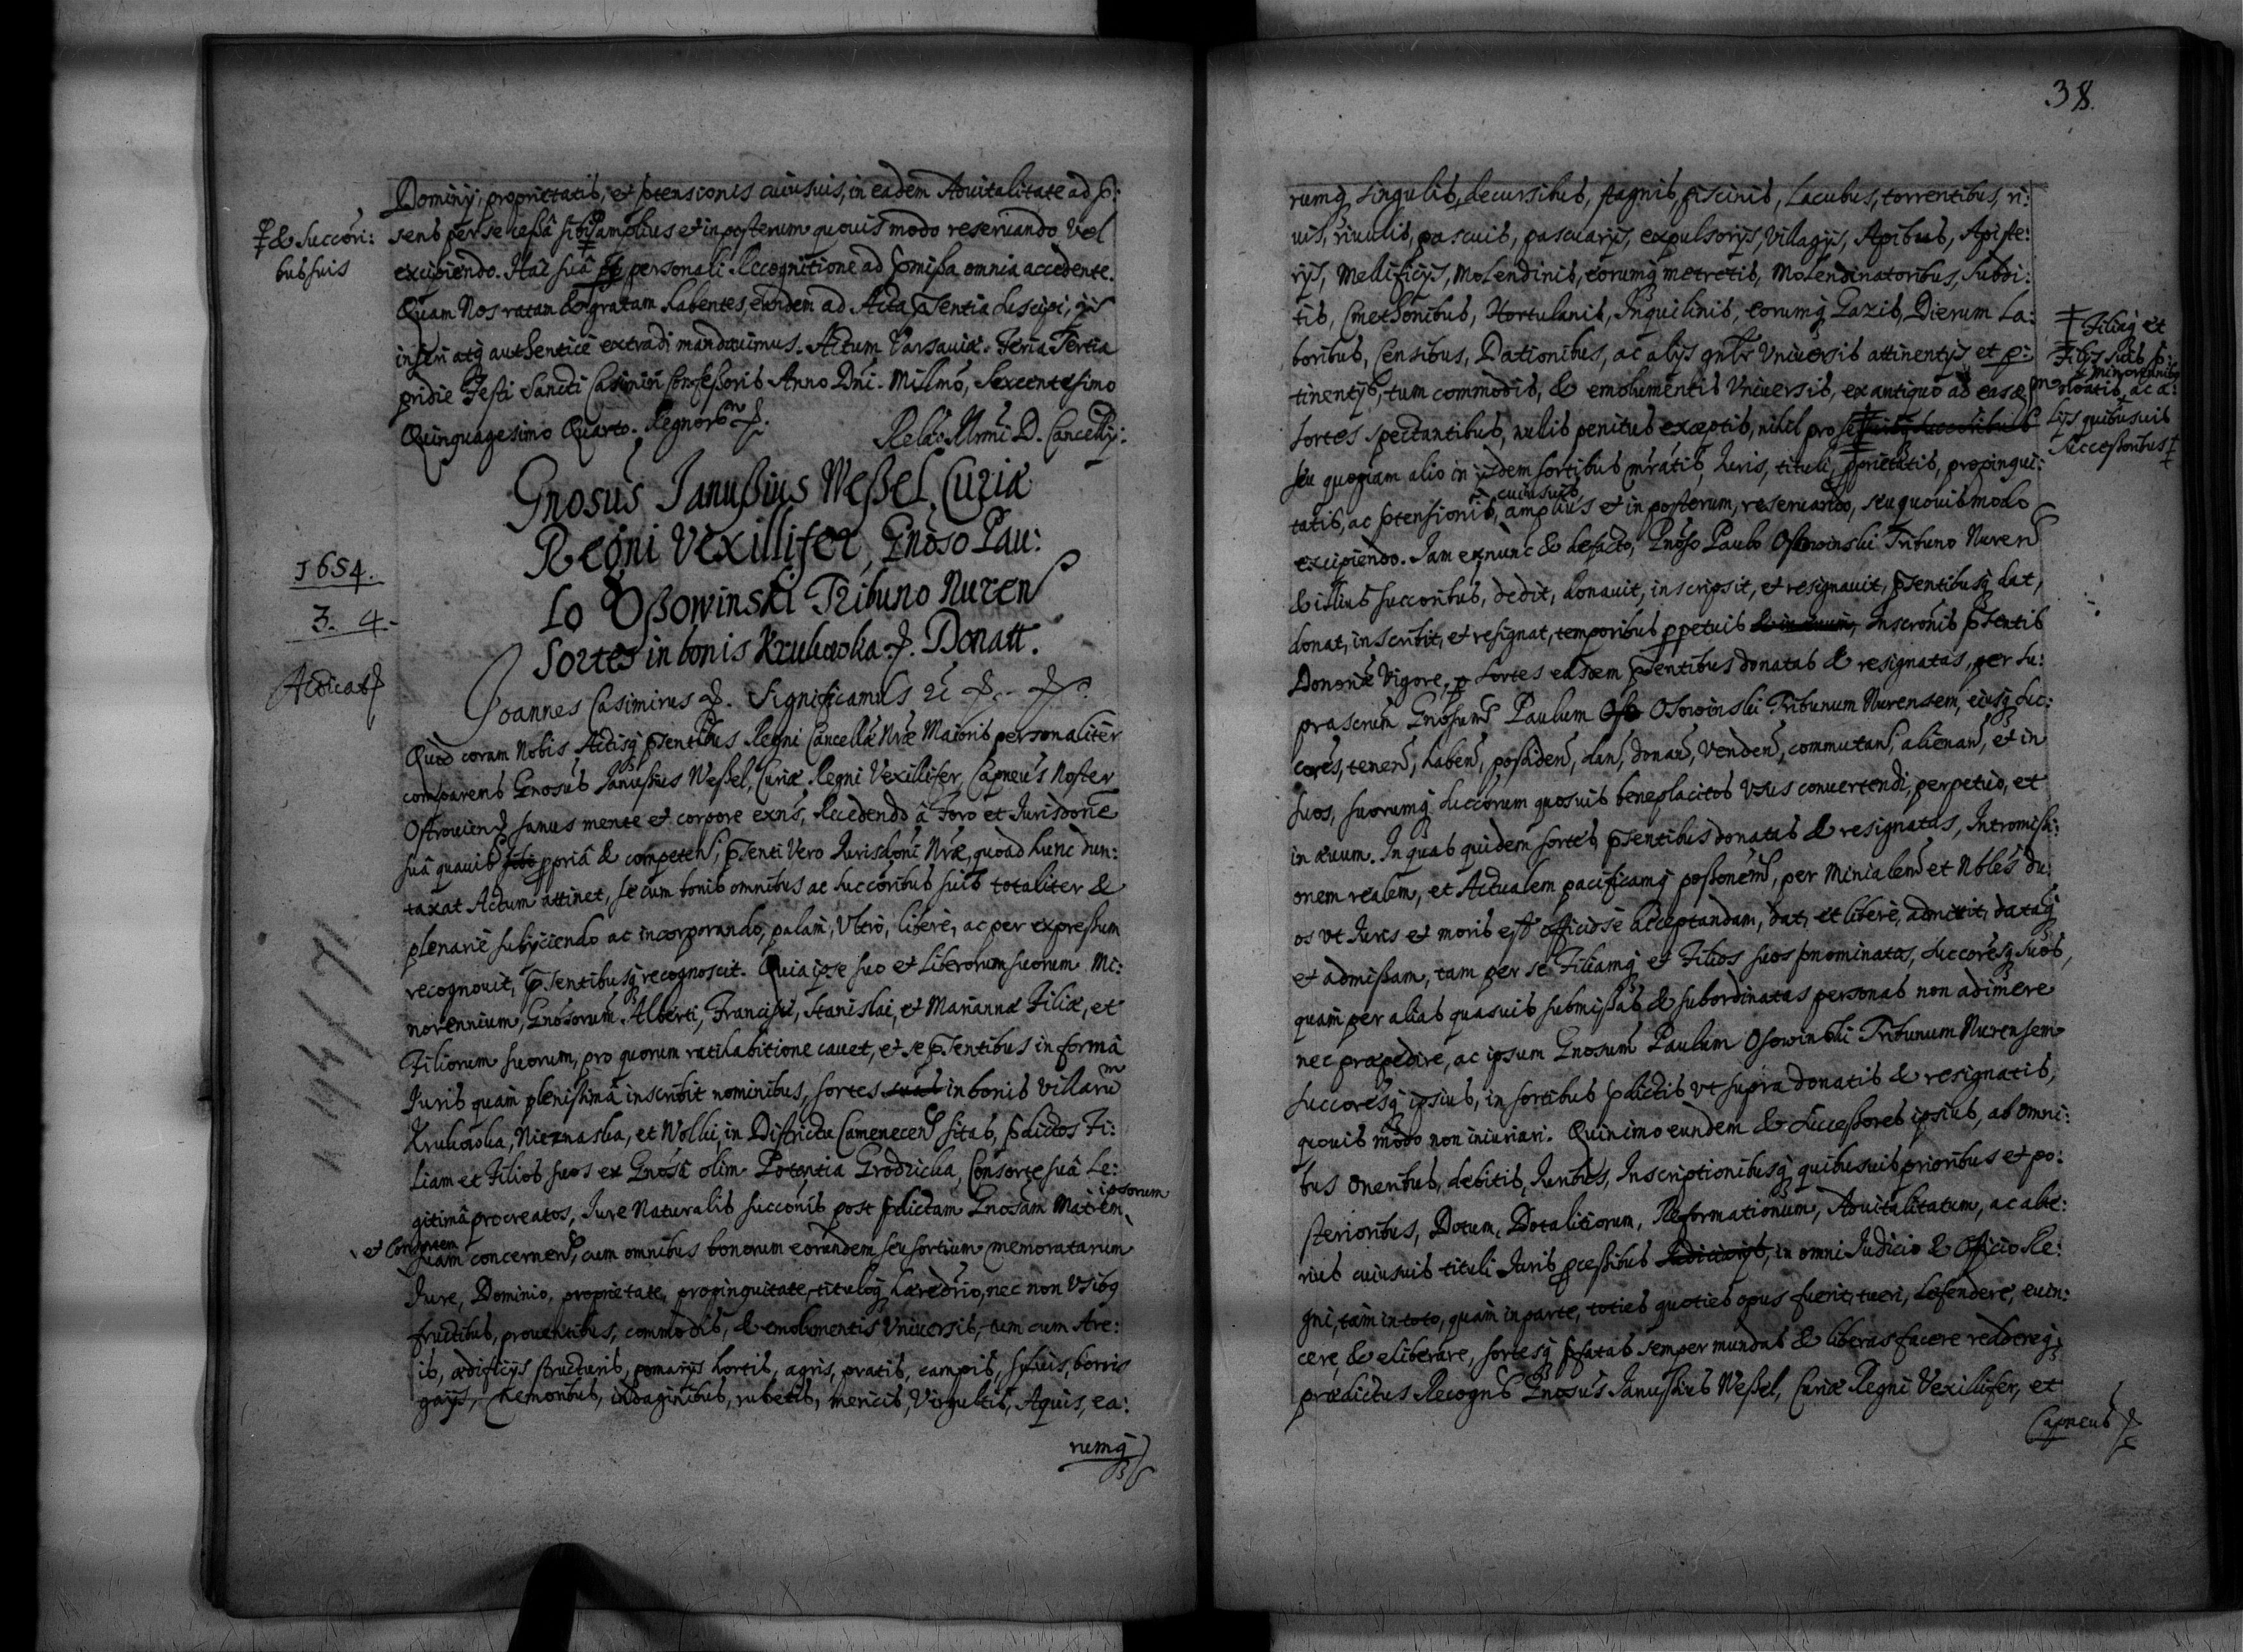 Dominij, proprietatis, et ptensionis cuiusuis, in eadem Aduitalitate ad p:
‡ & Succori:
bus suis
sens per se ceßâ sibi ‡ amplius et in posterum quouis modo reseruando vel
excipiendo. Hac suâ personali Recognitione ad pmißa omnia accedente.
Quam Nos ratam & gratam habentes, eandem ad Acta psentia suscipi, ijs
inseri atq authenticè extradi mandauimus. Actum Varsauiæ. Feria Tertia
pridie Festi Sancti Casimiri Confeßoris Anno Dni. Millmo, Sexcentesimo
Quinquagesimo Quarto. Regnorm &.
Relao Illmi D. Cancellij:
Gnosus Janußius Weßel, Curiæ
Regni Vexillifer, Gnoso Pau:
lo Oßowinski Tribuno Nuren
Sortes in bonis Krukowka &. Donatt.
1654.
3. 4.
Joannes Casimirus &. Significamus &c
Quòd coram Nobis Actisq psentibus Regni Cancellæ Nræ Maioris personalitèr
comparens Gnosus Janußius Weßel, Curiæ Regni Vexillifer, Capneus Noster
Ostrouien sanus mente et corpore exns, Recedendo â Foro et Jurisdone
suâ quauis sibi ppriâ & competen, psenti vero Jurisdoni Nræ, quoad hunc dun:
taxat Actum attinet, se cum bonis omnibus ac succoribus suis totaliter &
plenariè subijciendo ac incorporando, palam, vltrò, liberè, ac per expreßum
recognouit, psentibusq recognoscit. Quia ipse suo et Liberorum suorum Mi:
norennium, Gnosorum Alberti, Francisci, Stanislai, et Mariannæ Filiæ, et
Filiorum suorum, pro quorum ratihabitione cauet, et se psentibus in formâ
Juris quam plenißimâ inscribit nominibus, sortes suas in bonis villarum
Krukowka, Nieznaska, et Wolki, in Districtu Camenecen sitas, pdictos Fi:
liam et Filios suos ex Gnosâ olim Potentia Grodzicka, Consorte suâ Le:
gitimâ procreatos, Jure Naturalis succonis post pdictam Gnosam Matrem ipsorum
et Consortem
suam concernen, cum omnibus bonorum eorundem seu sortium memoratarum
Jure, Dominio, proprietate, propinquitate, tituloq hæredrio, nec non vsibq
fructibus, prouentibus, commodis, & emolumentis vniuersis, tum cum Are:
is, ædificijs structuris, pomarijs hortis, agris, pratis, campis, syluis, borris
gaijs, Nemoribus, indaginibus, rubetis, mericis, Virgultis, Aquis, ea:
rumq
38.
rumq singulis, decursibus, stagnis, piscinis, Lacubus, torrentibus, ri:
uis, riuulis, pascuis, pascuarijs, expulsorijs, villagijs, Apibus, Apiste:
rijs, Mellificijs, Molendinis, eorumq metretis, Molendinatoribus, subdi:
tis, Cmethonibus, Hortulanis, Inquilinis, eorumq Lazis, Dierum La:
boribus, Censibus, Dationibus, ac alijs gnlr vniuersis attinentijs et p:
tinentijs, tum commodis, & emolumentis vniuersis, ex antiquo ad easdem
‡ Filiaq et
Filijs suis p:
minorennibq
noiatis, ac a:
lijs quibusuis
successoribus ‡
sortes spectantibus, nullis penitus exceptis, nihil pro se ‡ suisq succoribus
seu quopiam alio in ijsdem sortibus mratis, Juris, tituli, pprietatis, propinqui:
tatis, ac ptensionis, cuiusuis, amplius et in posterum, reseruando, seu quouis modo
excipiendo. Jam ex nunc & de facto, Gnoso Paulo Osowinski Tribuno Nuren
& illius succoribus, dedit, donauit, inscripsit, et resignauit, psentibusq dat,
donat, inscribit, et resignat, temporibus ppetuis & in æuum, Inscronis psentis
Dononæ vigore, p sortes easdem psentibus donatas & resignatas, per su:
prascrum Gnosum Paulum Oso Osowinski Tribunum Nurensem, eiusq suc:
cores, tenen, haben, poßiden, dan, donan, venden, commutan, alienan, et in
suos, suorumq succorum quosuis beneplacitos vsus conuertendi, perpetuò, et
in æuum. In quas quidem sortes psentibus donatas & resignatas, Intromißi:
onem realem, et Actualem pacificamq poßonem, per Minialem et Nbles du:
os vt Juris et moris est officiosè acceptandam, dat, et liberè admittit, datamq
et admißam, tam per se Filiamq et Filios suos pnominatos, succoresq suos,
quam per alias quasuis submißas & subordinatas personas non adimere
nec præpedire, ac ipsum Gnosum Paulum Osowinski Tribunum Nurensem
succoresq ipsius, in sortibus pdictis vt supra donatis & resignatis,
quouis modo non iniuriari. Quinimo eundem & successores ipsius, ab omni:
bus Oneribus, debitis, Juribus, Inscriptionibusq quibusuis prioribus et po:
sterioribus, Dotum, Dotalitiorum, Reformationum, Aduitalitatum, ac alte:
rius cuiusuis tituli Juris pceßibus Judicianis, in omni Judicio & Officio Re:
gni, tam in toto, quam in parte, toties quoties opus fuerit, tueri, defendere, euin:
cere, & eliberare, sortesq pfatas semper mundas & liberas facere reddereq
prædictus Recogns Gnosus Janußius Weßel, Curiæ Regni Vexillifer, et
Capneus